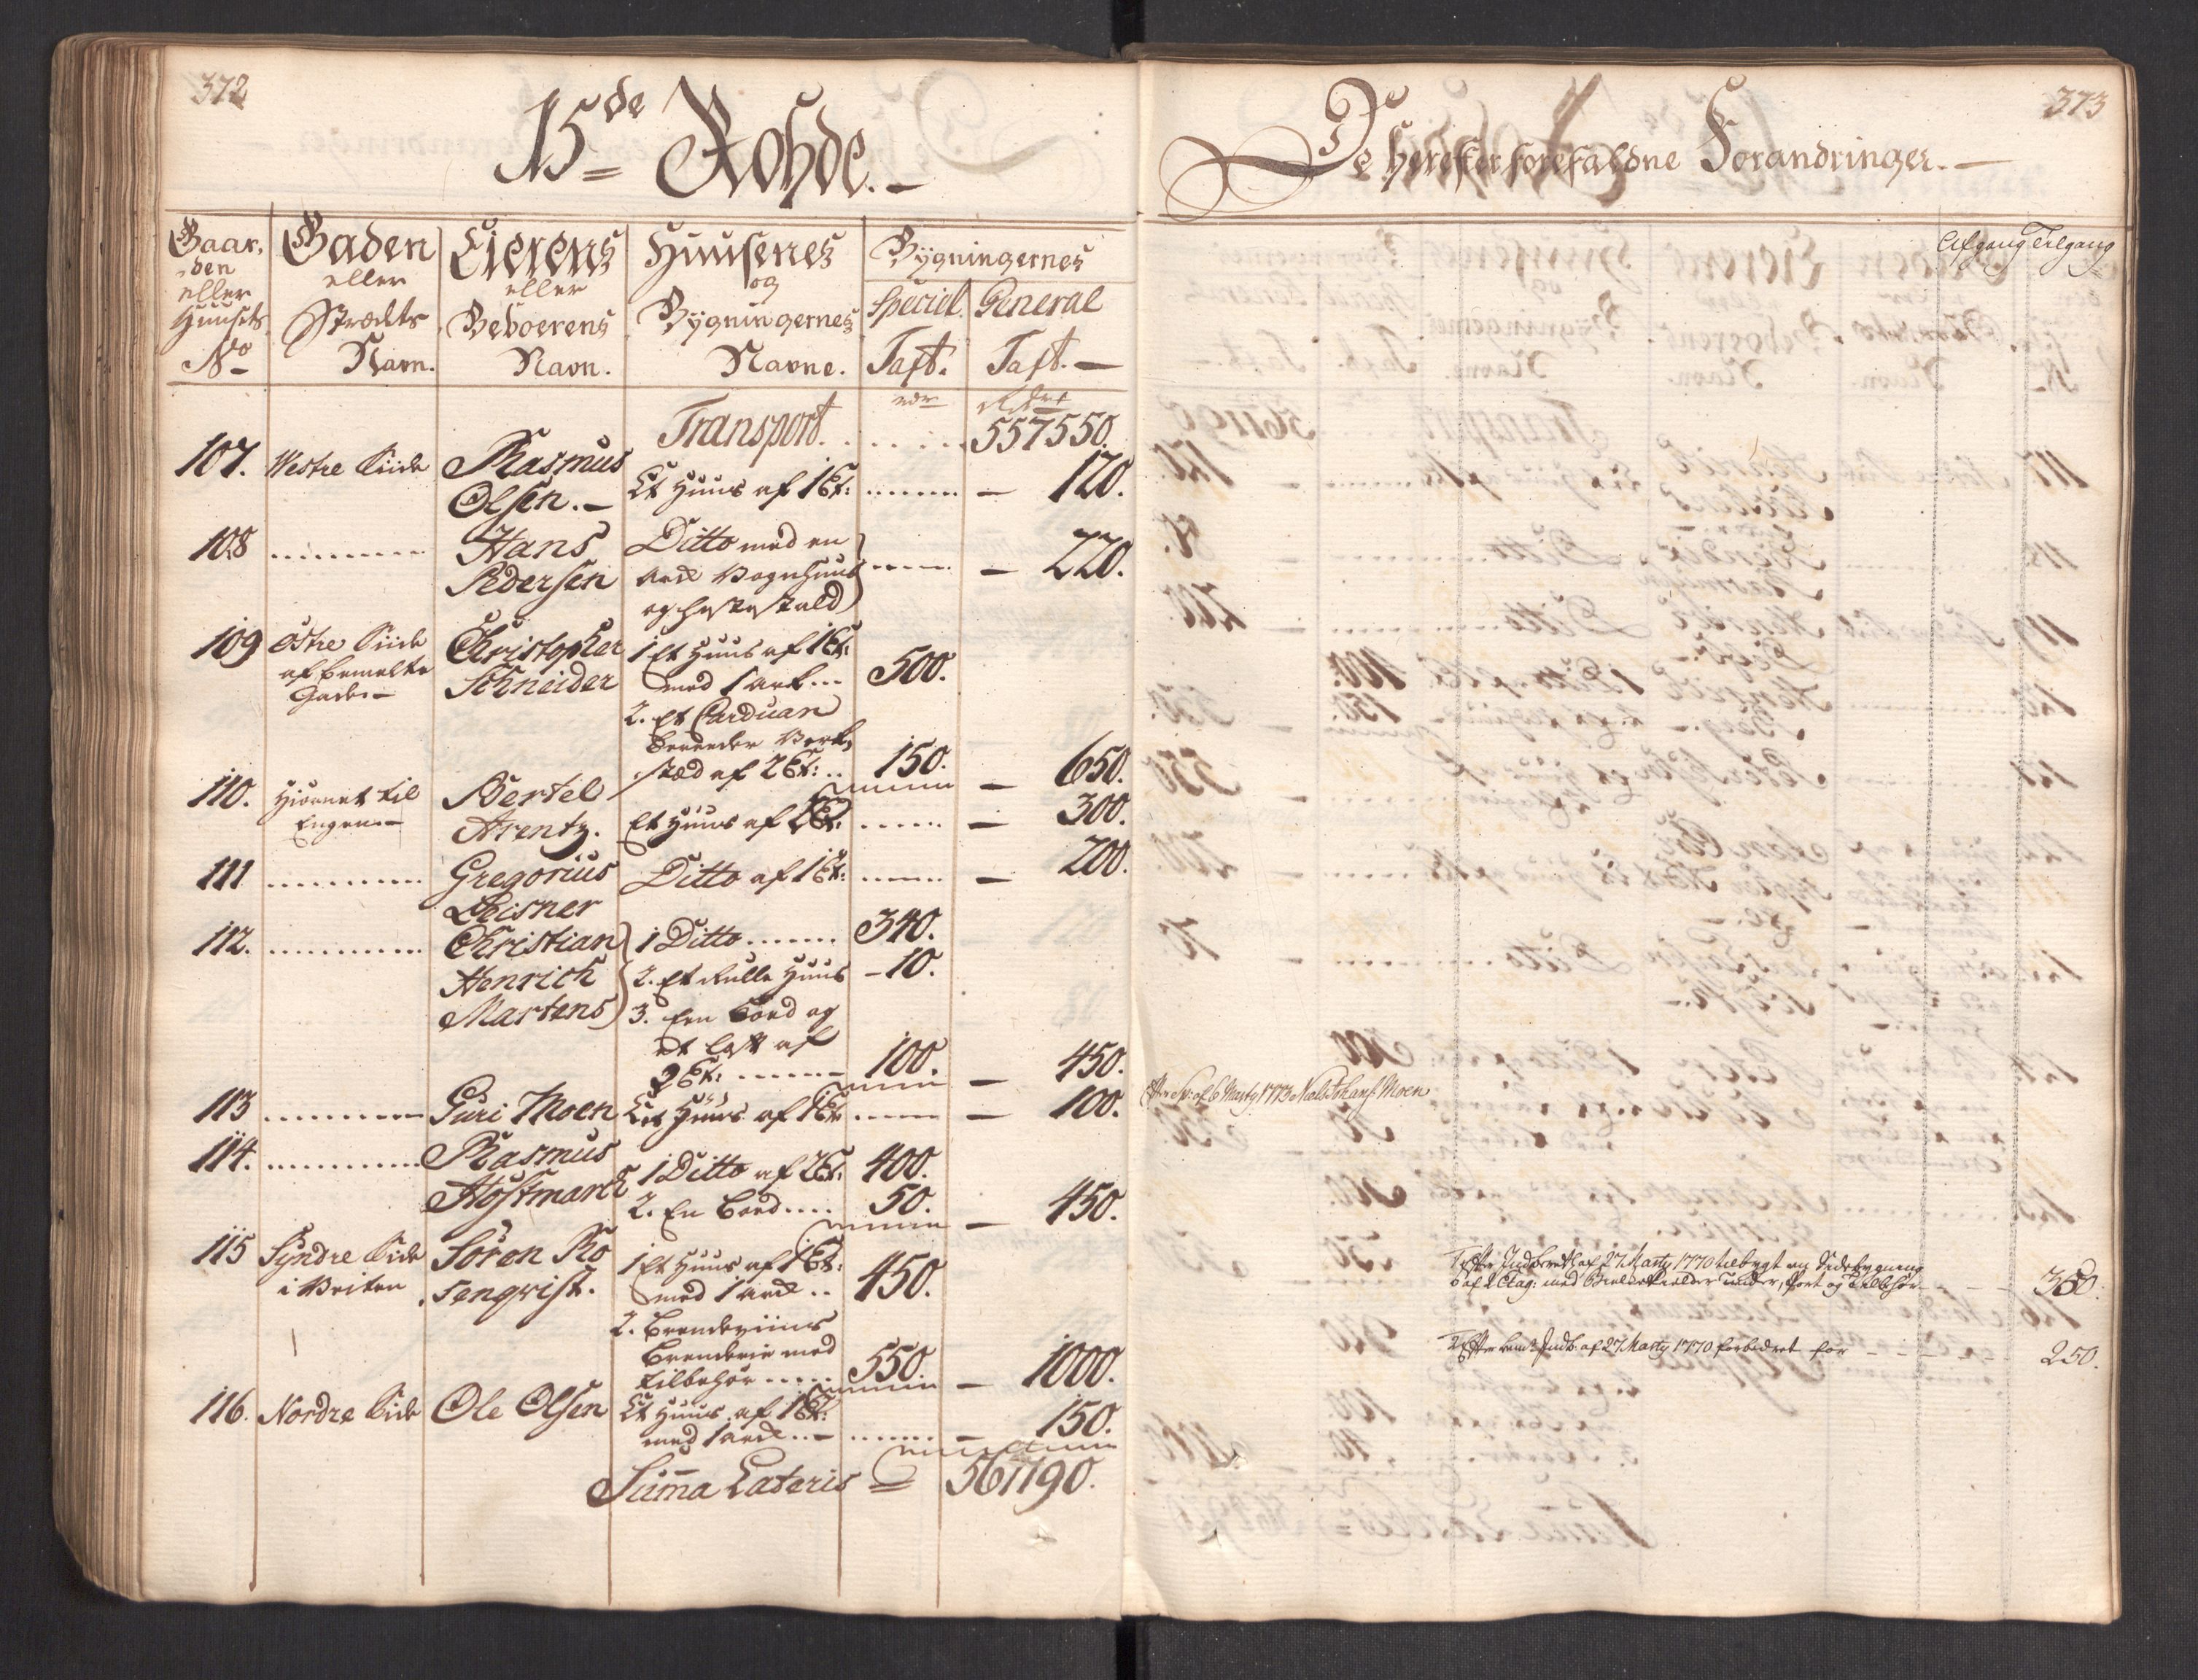 372
15de Rohde.
Gaar,
den
eller
Huusets
No
Gaden
eller
Strædets
Navn.
Eierens
eller
Beboerens
Navn.
Huusenes
og
Bygningernes
Navne.
Bygningernes
Speciel
Taxt.
General
Taxt.
rdr
Transport. 557550.
107. Westre Siide Rasmus Et Huus af 1 Et: 120.
Olsen.
108 Hans Ditto med en 220.
Pedersen Vognhuus
og Hestestald
109 Østre Siide Christopher 1 Et Huus af 1 Et:
af bemelte Schneider med 1 ark 500.
Gade
2. Et Carduan
bereeder Verk,
sted af 2 Et: 150. 650.
110. Hiørnet til Bertel
Engen Arentz. Et Huus af 2 Et: 300.
111 Gregorius Ditto af 1 Et: 200.
Leisner
112. Christian 1 Ditto 340.
Henrich 2. Et Rulle Huus 10.
Martens 3. Een Boed og
et Loft af
2 Et: 100. 450.
113 Guri Moen Et Huus af 1 Et: 100.
114. Rasmus 1 Ditto af 2 Et: 400.
Hostmarck 2. En Boed 50. 450.
115 Syndre Side Søren Ro 1 Et Huus af 1 Et:
i Veiten senqvist. med 1 ark 450.
2. Brændeviins
Brænderie med
tilbehør 550. 1000.
116. Nordre Side Ole Olsen Et Huus af 1 Et:
med 1 ark 150.
Summa Lateris 561190.
373
De herefter forefaldne Forandringer.
Afgang Tilgang
6 Marty 1773 Moen
27 Marty 1770 tilbygt en Sidebygning
af 2 Etag: med under, Port og Tilbehør
af 27 Marty 1770 forbedret for 250.